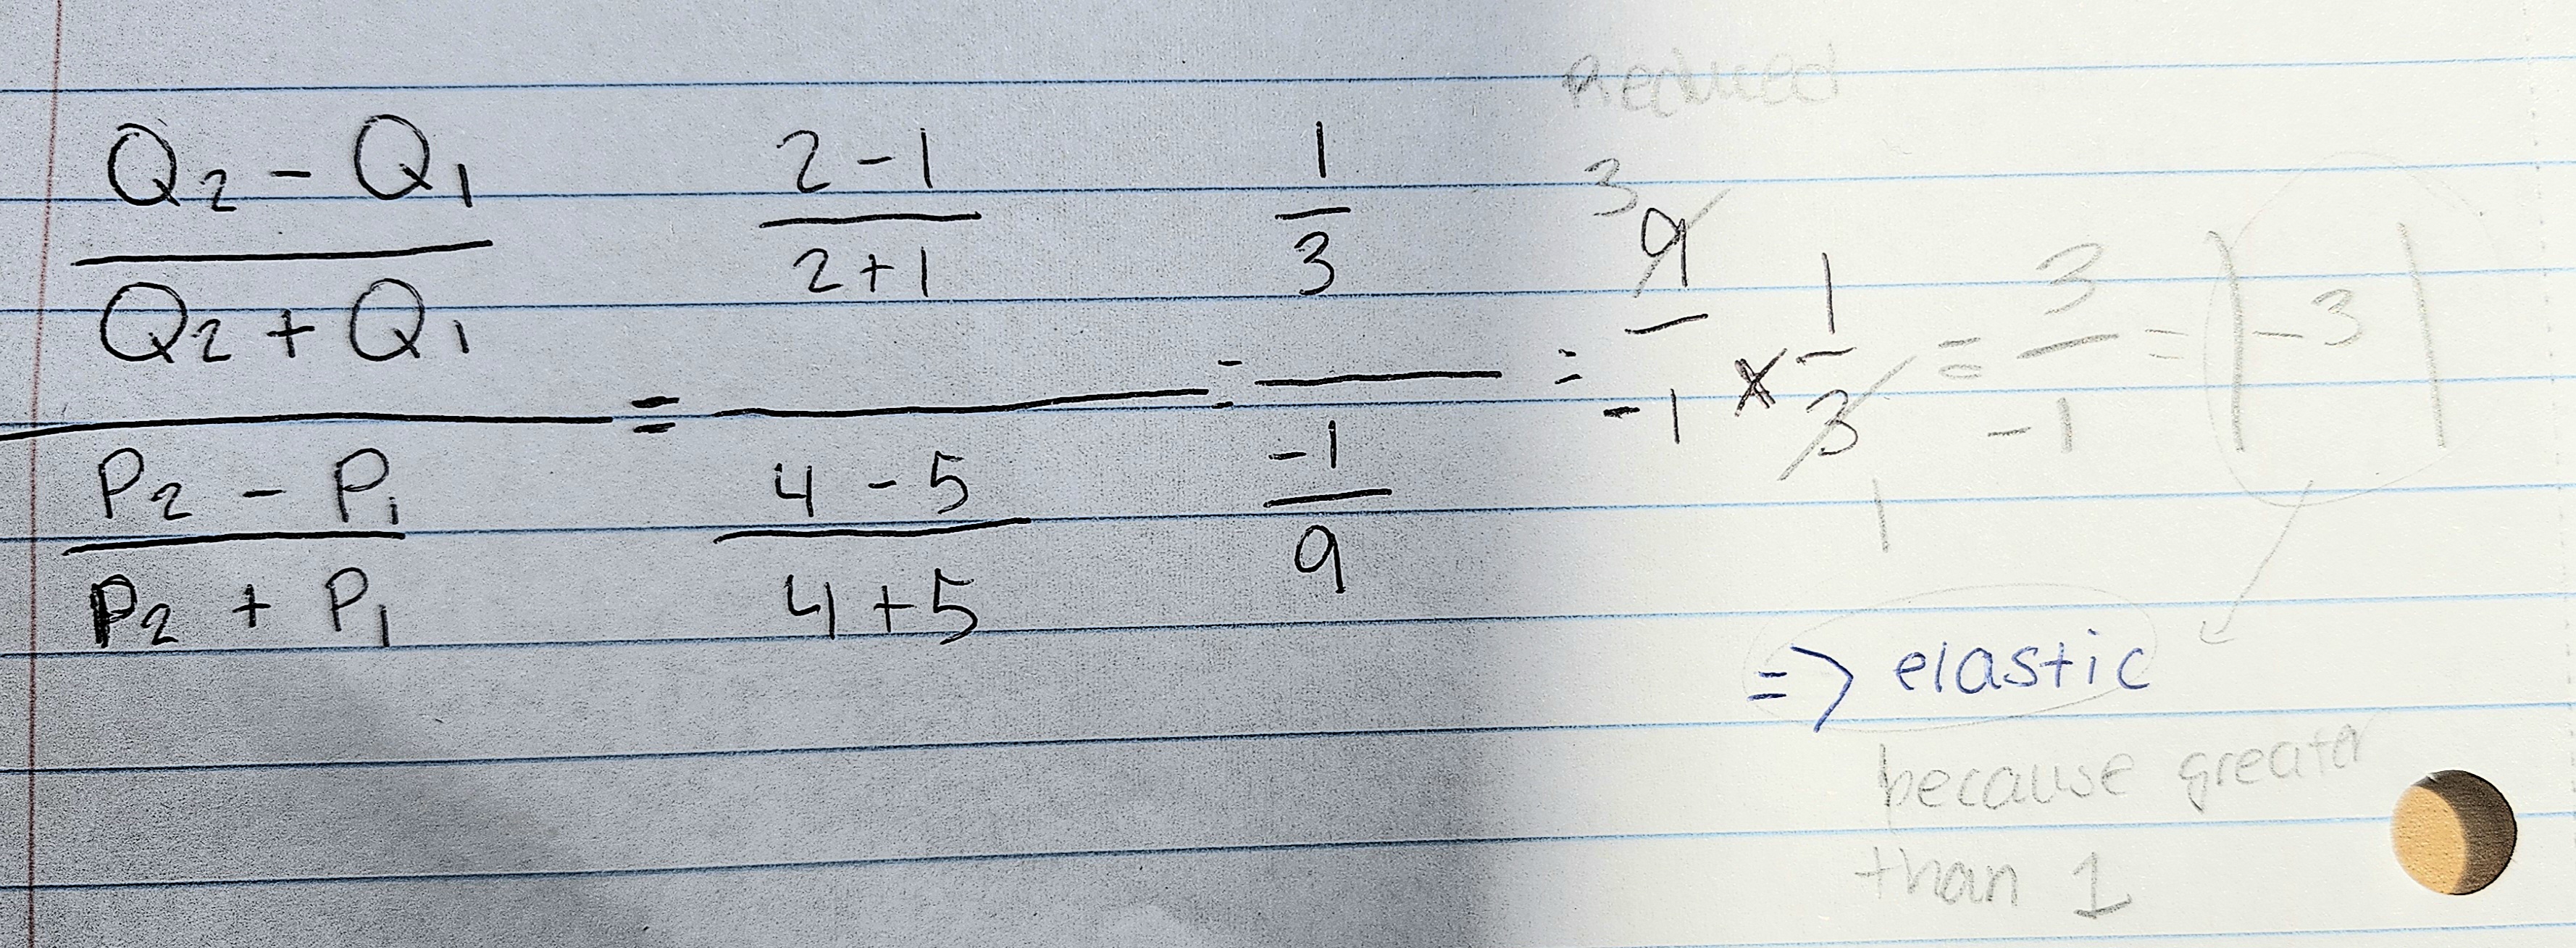 Reduced
Q₂ - Q₁ / Q₂ + Q₁
P₂ - P₁ / P₂ + P₁
=
2 - 1 / 2 + 1
4 - 5 / 4 + 5
=
1 / 3
-1 / 9
=
3
9 / -1 × 1 / 3
1
= 3 / -1 = |-3|
=> elastic
because greater
than 1